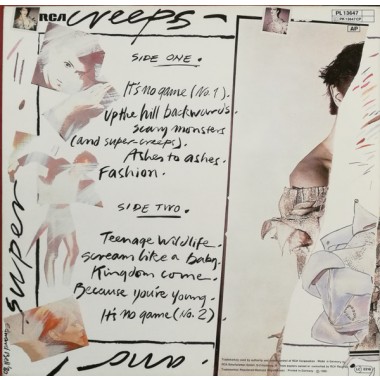 RCA
creeps
PL13647
AIP
SIDE ONE.
It's no game (No. 1).
Up the hill backwards.
Scary monsters
(and super-creeps).
Ashes to ashes.
Fashion.
SIDE TWO.
Teenage Wildlife.
Scream like a Baby.
Kingdom come.
Because you're young.
It's no game (No. 2).
super
and